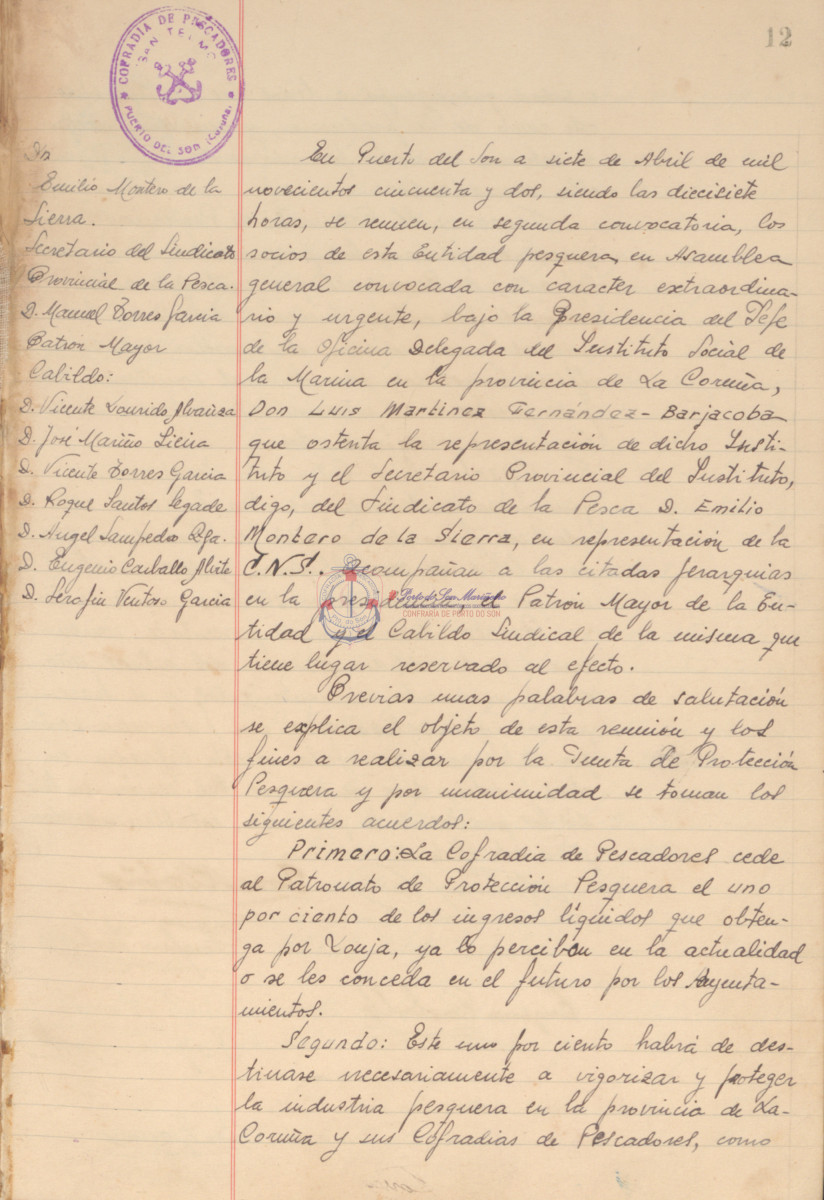 12
COFRADIA DE PESCADORES
SAN TELMO
PUERTO DEL SON (Coruña)
Dn
Emilio Montero de la
Sierra.
Secretario del Sindicato
Provincial de la Pesca.
D. Manuel Torres Garcia
Patrón Mayor
Cabildo:
D. Vicente Lourido Alvariza
D. José Mariño Lieira
D. Vicente Torres Garcia
D. Roque Santos Segade
D. Angel Sampedro
D. Eugenio Carballo
D. Serafin Ventoso Garcia
En Puerto del Son a siete de Abril de mil
novecientos cincuenta y dos, siendo las diecisiete
horas, se reunen, en segunda convocatoria, los
socios de esta Entidad pesquera, en Asamblea
general convocada con caracter extraordina-
rio y urgente, bajo la Presidencia del Jefe
de la Oficina Delegada del Instituto Social de
la Marina en la provincia de La Coruña,
Don Luis Martinez Fernández-Barjacoba
que ostenta la representación de dicho Insti-
tuto y el Secretario Provincial del Instituto,
digo, del Sindicato de la Pesca D. Emilio
Montero de la Sierra, en representación de la
C.N.S.. Acompañan a las citadas Jerarquias
en la presidencia, el Patrón Mayor de la En-
tidad y el Cabildo Sindical de la misma que
tiene lugar reservado al efecto.
Previas unas palabras de salutación
se explica el objeto de esta reunión y los
fines a realizar por la Junta de Protección
Pesquera y por unanimidad se toman los
siguientes acuerdos:
Primero: La Cofradia de Pescadores cede
al Patronato de Protección Pesquera el uno
por ciento de los ingresos líquidos que obten-
ga por Lonja, ya lo perciban en la actualidad
o se les conceda en el futuro por los Ayunta-
mientos.
Segundo: Este uno por ciento habrá de des-
tinase necesariamente a vigorizar y proteger
la industria pesquera en la provincia de La
Coruña y sus Cofradias de Pescadores, como
CONFRARIA DE PORTO DO SON